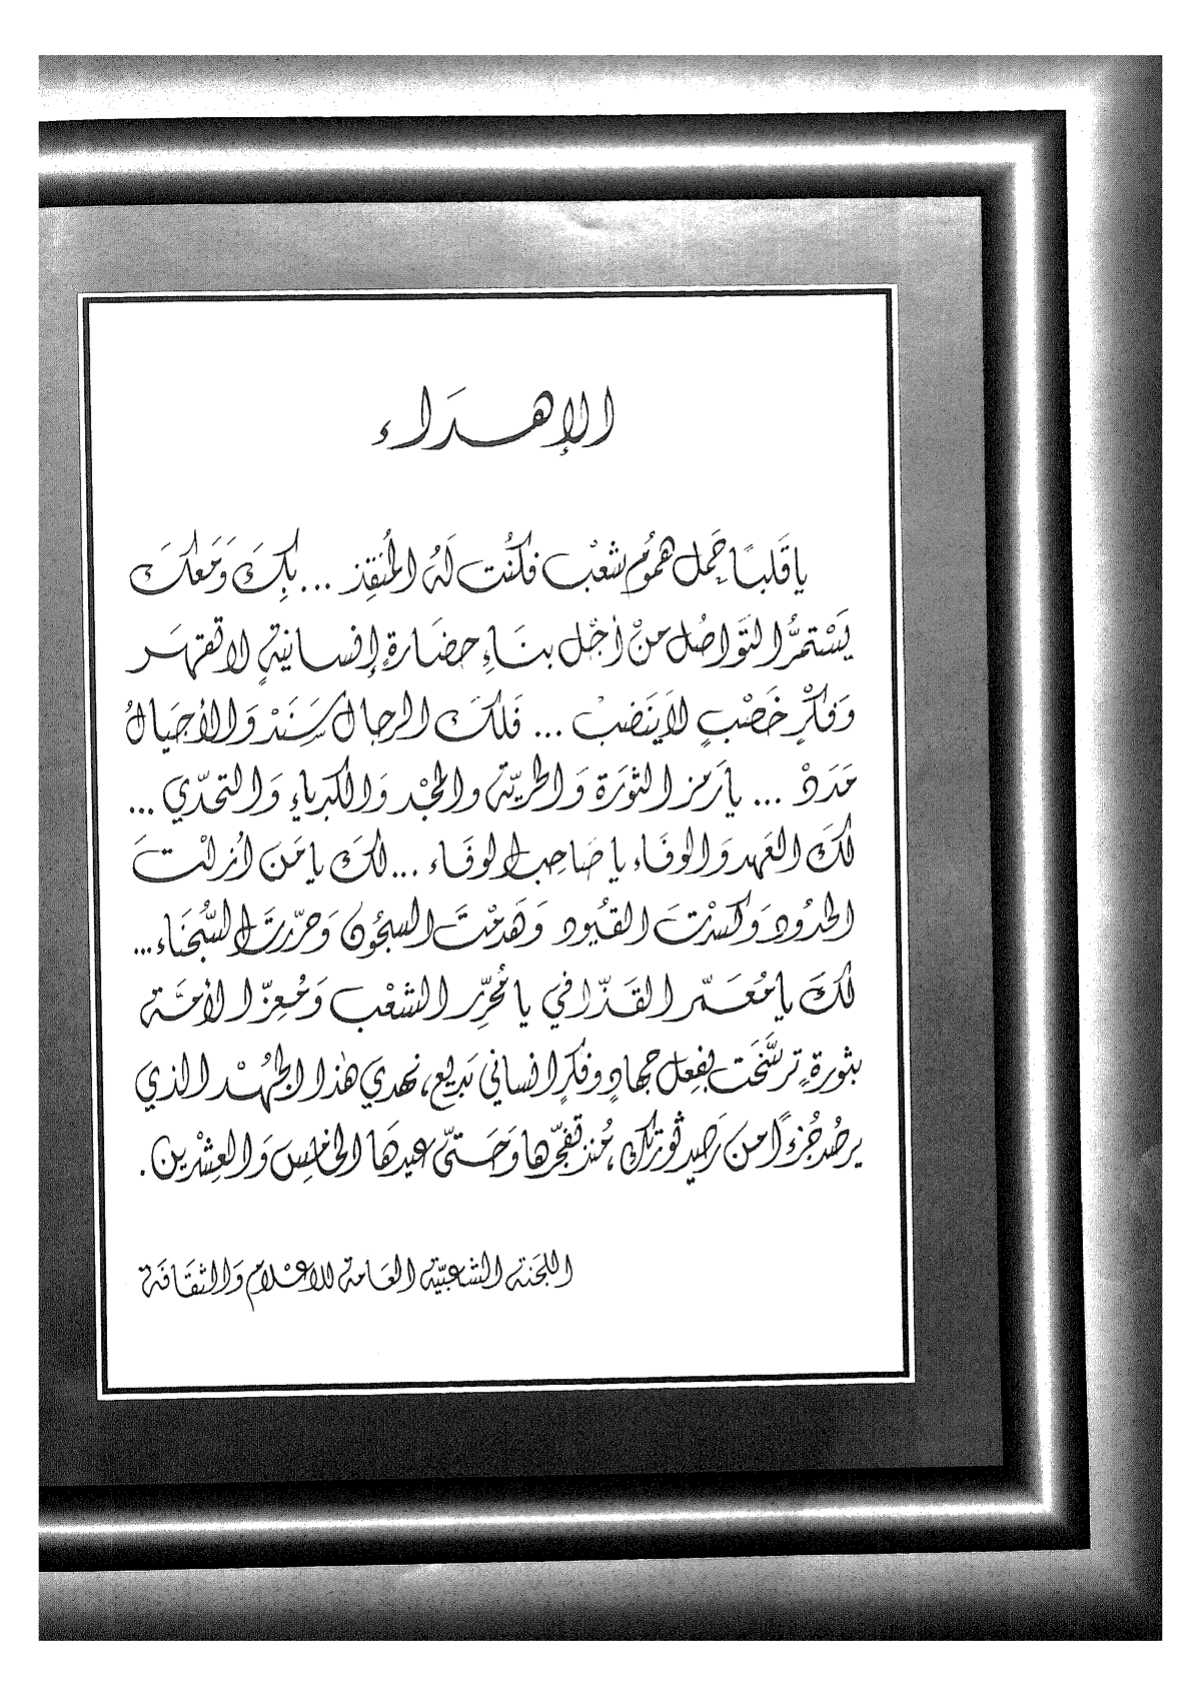 الإهـدَاء
يا قَلبًا حَمل همُوم شعْب فكُنْت لَهُ المُنقِذ ... بِكَ وَمَعكَ
يَسْتمرُّ التَوَاصُل منْ أجْل بنَاءِ حضَارةٍ إنسانيةٍ لا تقهَر
وَفكْرٍ خَصْبٍ لاَ ينَضبْ ... فَلكَ الرجال سَنَدْ وَالأجيَالُ
مَدَدْ ... يا رَمز الثورَة وَالحريّة والمجْد وَالكبرياءِ وَالتحدّي ...
لكَ العَهد وَالوفَاء يا صَاحِب الوفَاء ... لكَ يا مَن أزلْتَ
الحدُود وَكسرْتَ القيُود وَهَدمْتَ السجُون وَحرّرتَ السُّجنَاء ...
لكَ يا مُعَمّر القَذّافي يا مُحرِّر الشعْب وَمُعِزّ الأمّة
بثورةٍ ترسَّخَت بفِعل جهادٍ وفكرٍ انساني بَديع، نهدي هٰذا الجُهْد الذي
يرصُد جُزءًا من رَصيد ثورتك، مُنذ تفجّرها وَحَتىّ عيدهَا الخامِس وَالعِشْرين .
اللجَنة الشعبيّة العَامة للاعْلام وَالثقَافَة